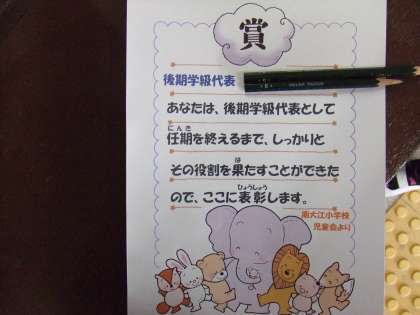 賞
後期学級代表
あなたは、後期学級代表として
にんき
任期を終えるまで、しっかりと
は
その役割を果たすことができた
ひょうしょう
ので、ここに表彰します。
南大江小学校
児童会より